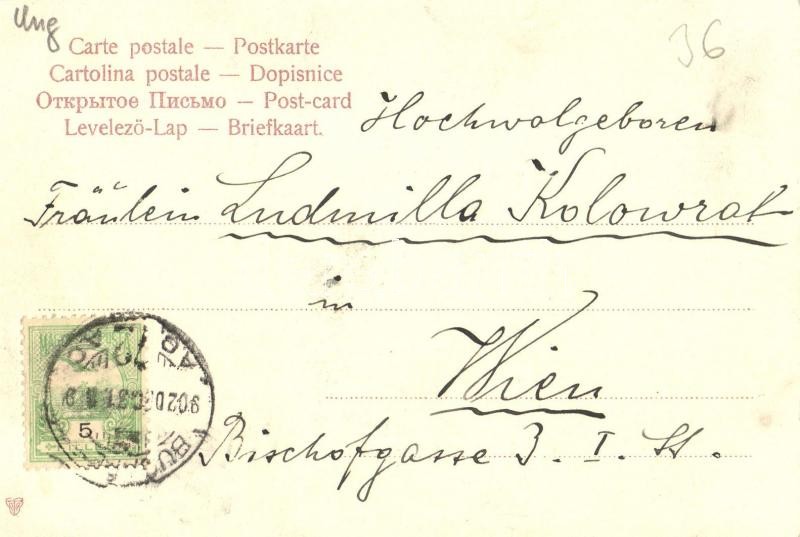 Ung
36
Carte postale — Postkarte
Cartolina postale — Dopisnice
Открытое Письмо — Post-card
Levelező-Lap — Briefkaart.
Hochwolgeboren
Fräulein Ludmilla Kolowrat
in
Wien
Bischofgasse 3. I. St.
5
902 DEC 31
BU
72